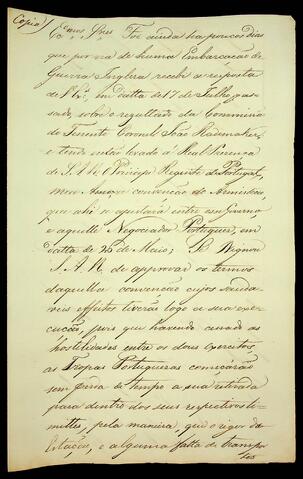 Copia
Ex.mos Snres Foi ainda ha poucos dias
que por via de huma Embarcação de
Guerra Ingleza recebi a resposta
de V. Ex.ª, em datta de 17 de Julho, pas-
sado, sobre o resultado da Commissão
do Tenente Coronel João Rademaker,
e tendo então levado á Real Presença
de S. A. R. o Principe Regente de Portugal,
meu Amo, a convenção de Armisticio,
que ahi se ajustára entre esse Governo
e aquelle Negociador Portuguez, em
datta de 26 de Maio; Se Dignou
S. A. R. de approvar os termos
daquella convenção cujos sauda-
veis effeitos tiverão logo a sua exe-
cução, pois que havendo cessado as
hostilidades entre os dous exercitos,
as Tropas Portuguezas começárão
sem perda de tempo a sua retirada
para dentro dos seus respectivos Li-
mittes, pela maneira, que o rigor da
Estação, e alguma falta de transpor-
tes